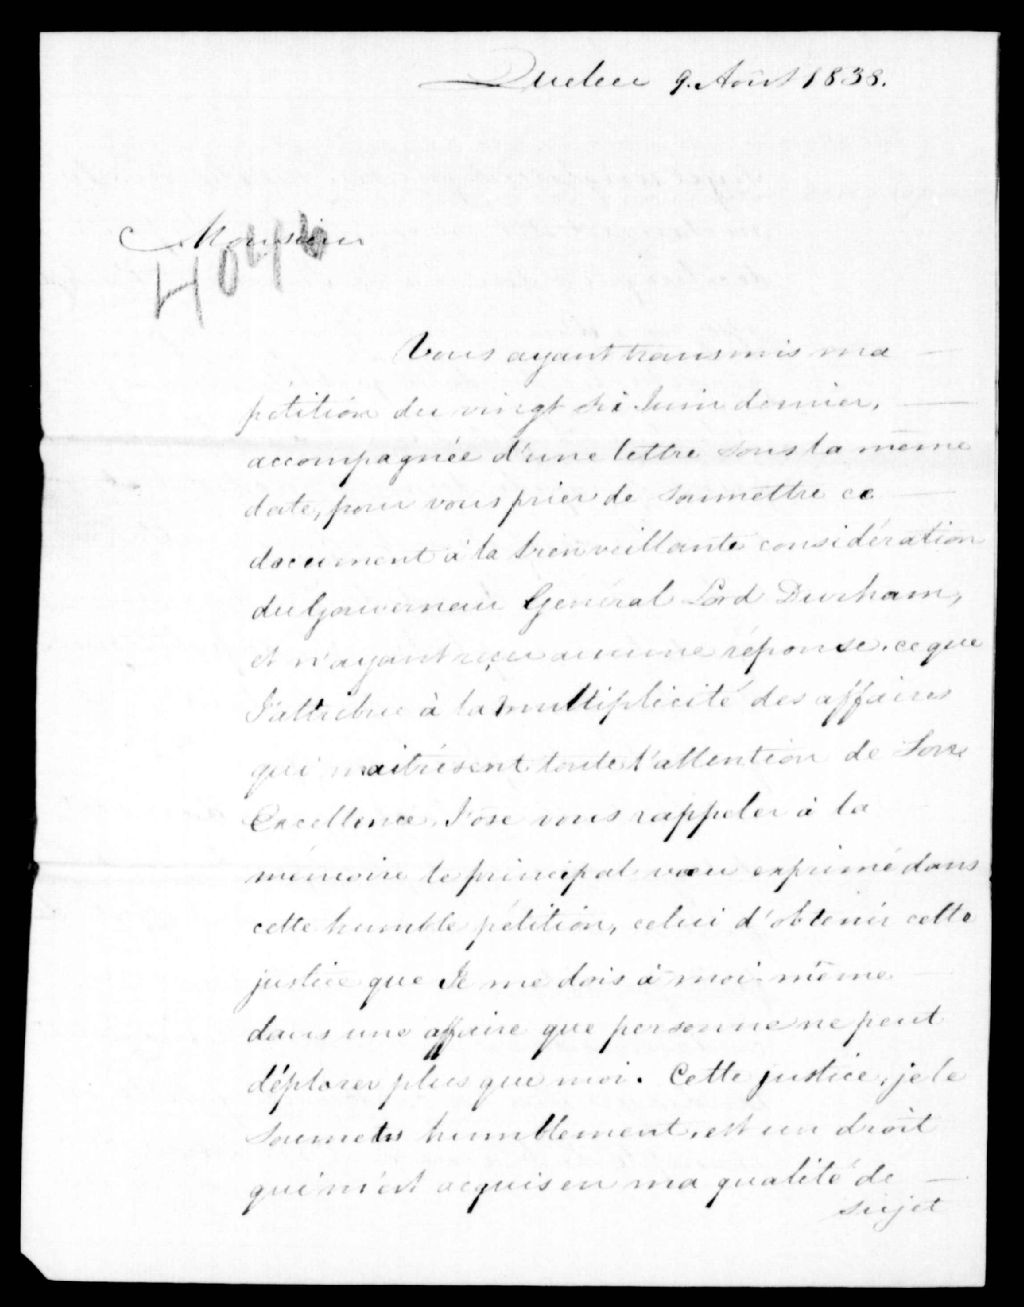 Quebec 9. Août 1838.
Monsieur
4046
Vous ayant transmis ma
pétition du vingt six Juin dernier,
accompagnée d'une lettre sous la même
date, pour vous prier de soumettre ce
document à la bienveillante considération
du Gouverneur Général Lord Durham,
et n'ayant reçu aucune réponse, ce que
J'attribue à la multiplicité des affaires
qui maitrisent toute l'attention de Son
Excellence, J'ose vous rappeler à la
mémoire le principal vœu exprimé dans
cette humble pétition, celui d'obtenir cette
justice que Je me dois à moi-même
dans une affaire que personne ne peut
déplorer plus que moi. Cette justice, je le
soumets humblement, est un droit
qui m'est acquis en ma qualité de
sujet